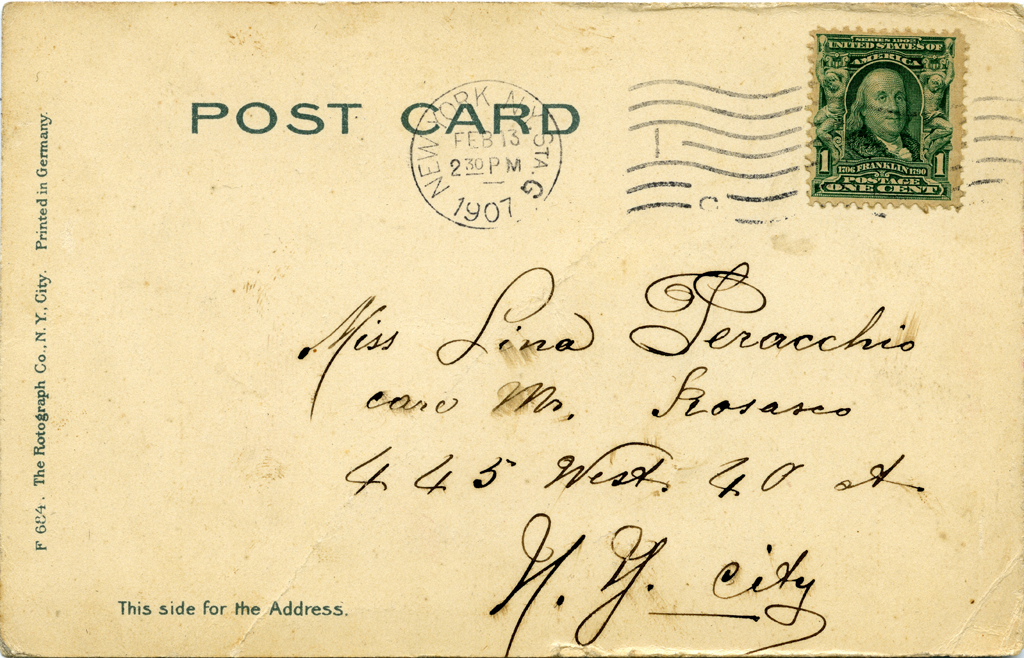 POST CARD
NEW YORK, N.Y. STA. G
FEB 13
2 30 PM
1907
SERIES 1902
UNITED STATES OF
AMERICA
1 1
1706 FRANKLIN 1790
POSTAGE
ONE CENT
Miss Lina Peracchio
care Mr. Rosasco
445 West. 40 st.
N. Y. city
This side for the Address.
F 684. The Rotograph Co., N. Y. City. Printed in Germany.